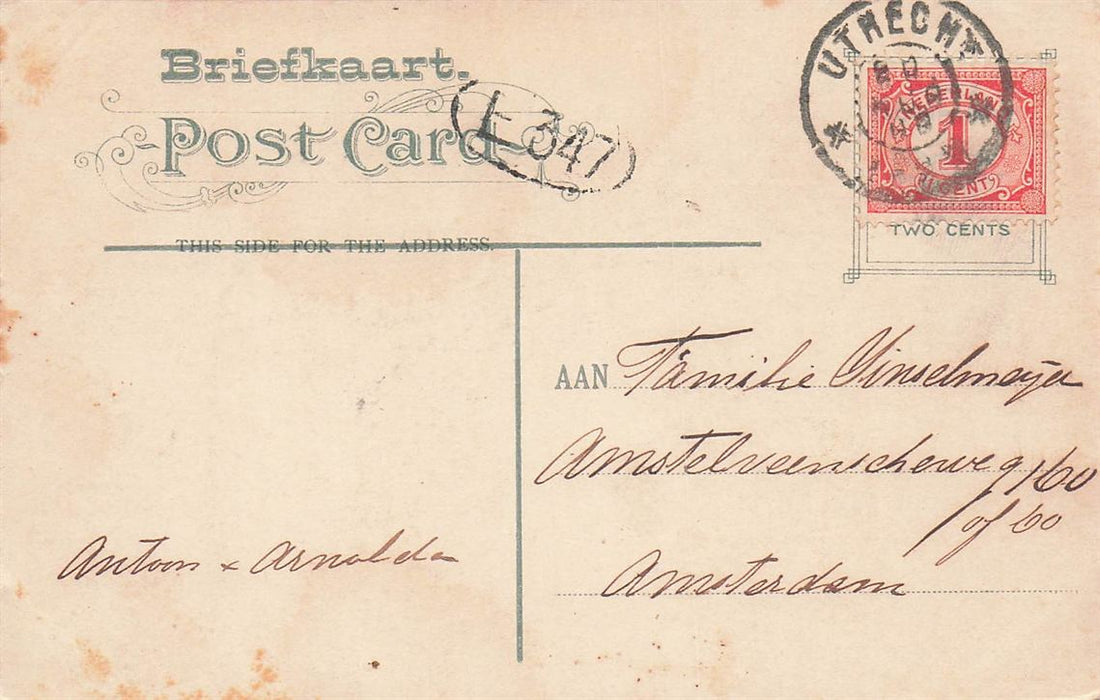 Briefkaart.
Post Card
L 347
THIS SIDE FOR THE ADDRESS.
UTRECHT
NEDERLAND
1
CENT
TWO CENTS
AAN Familie
Amstelveenscheweg 160
of 60
Amsterdam
Antoon & Arnolda